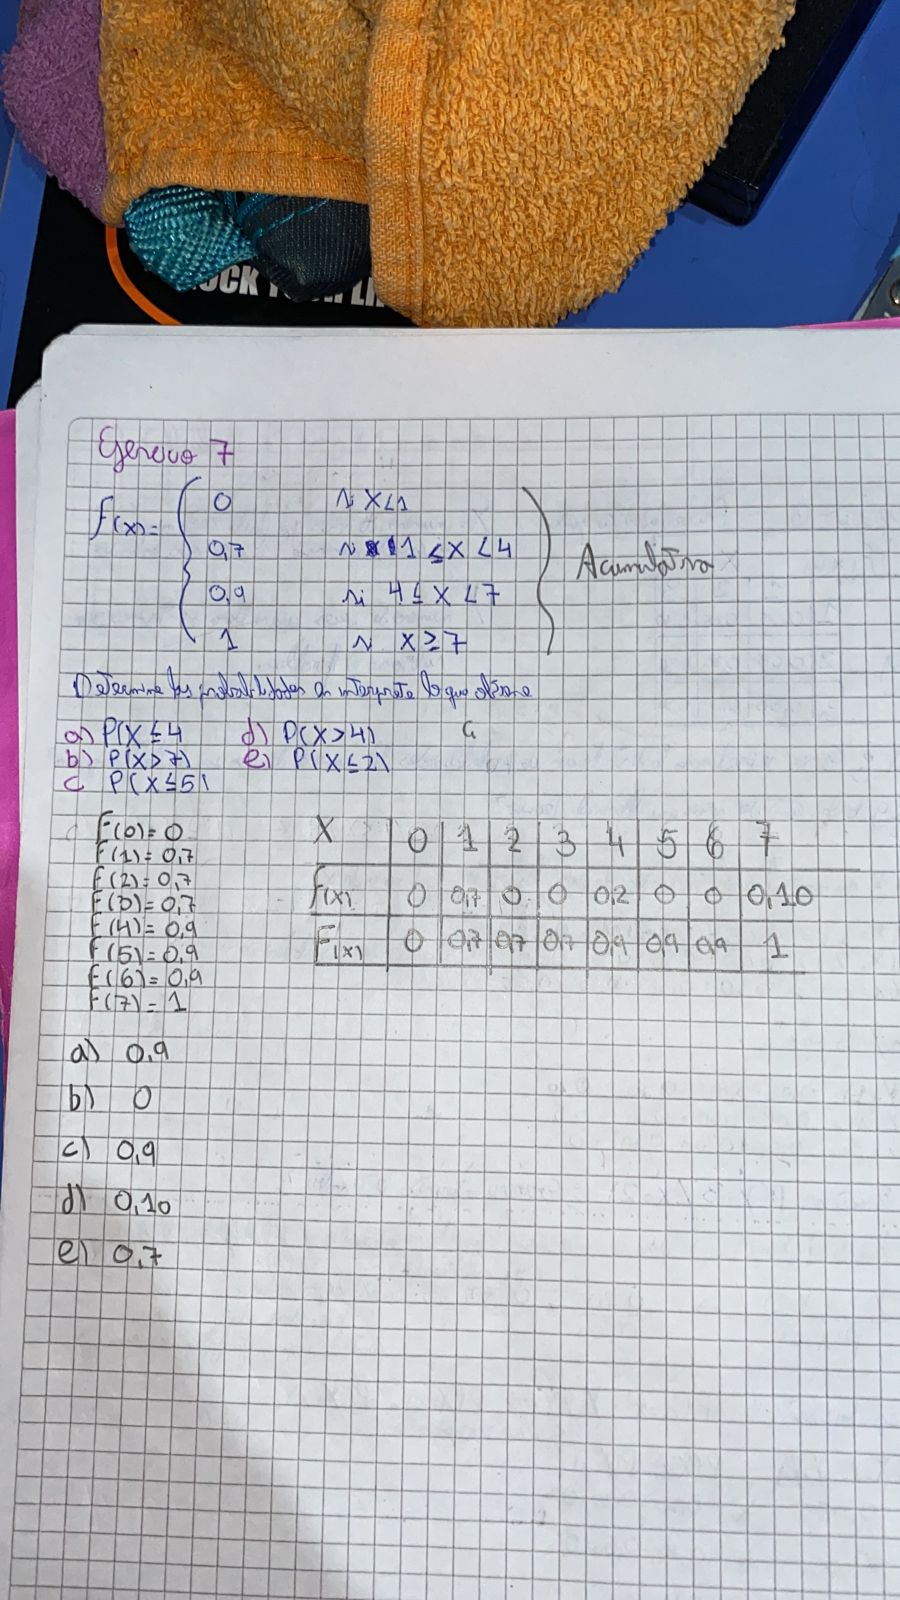 Ejercicio 7
f(x)= 0 si x<1
0,7 si 1 ≤ x < 4
0,9 si 4 ≤ x < 7
1 si x ≥ 7
Acumulativa
Determine las probabilidades interprete lo que obtiene
a) P(X ≤ 4 d) P(X>4)
b) P(X>7) e) P(X≤2)
c P(X≤5)
F(0)= 0
F(1)= 0,7
F(2)= 0,7
F(3)= 0,7
F(4)= 0,9
F(5)= 0,9
F(6)= 0,9
F(7)= 1
X 0 1 2 3 4 5 6 7
f(x) 0 0,7 0 0 0,2 0 0 0,10
F(x) 0 0,7 0,7 0,7 0,9 0,9 0,9 1
a) 0,9
b) 0
c) 0,9
d) 0,10
e) 0,7